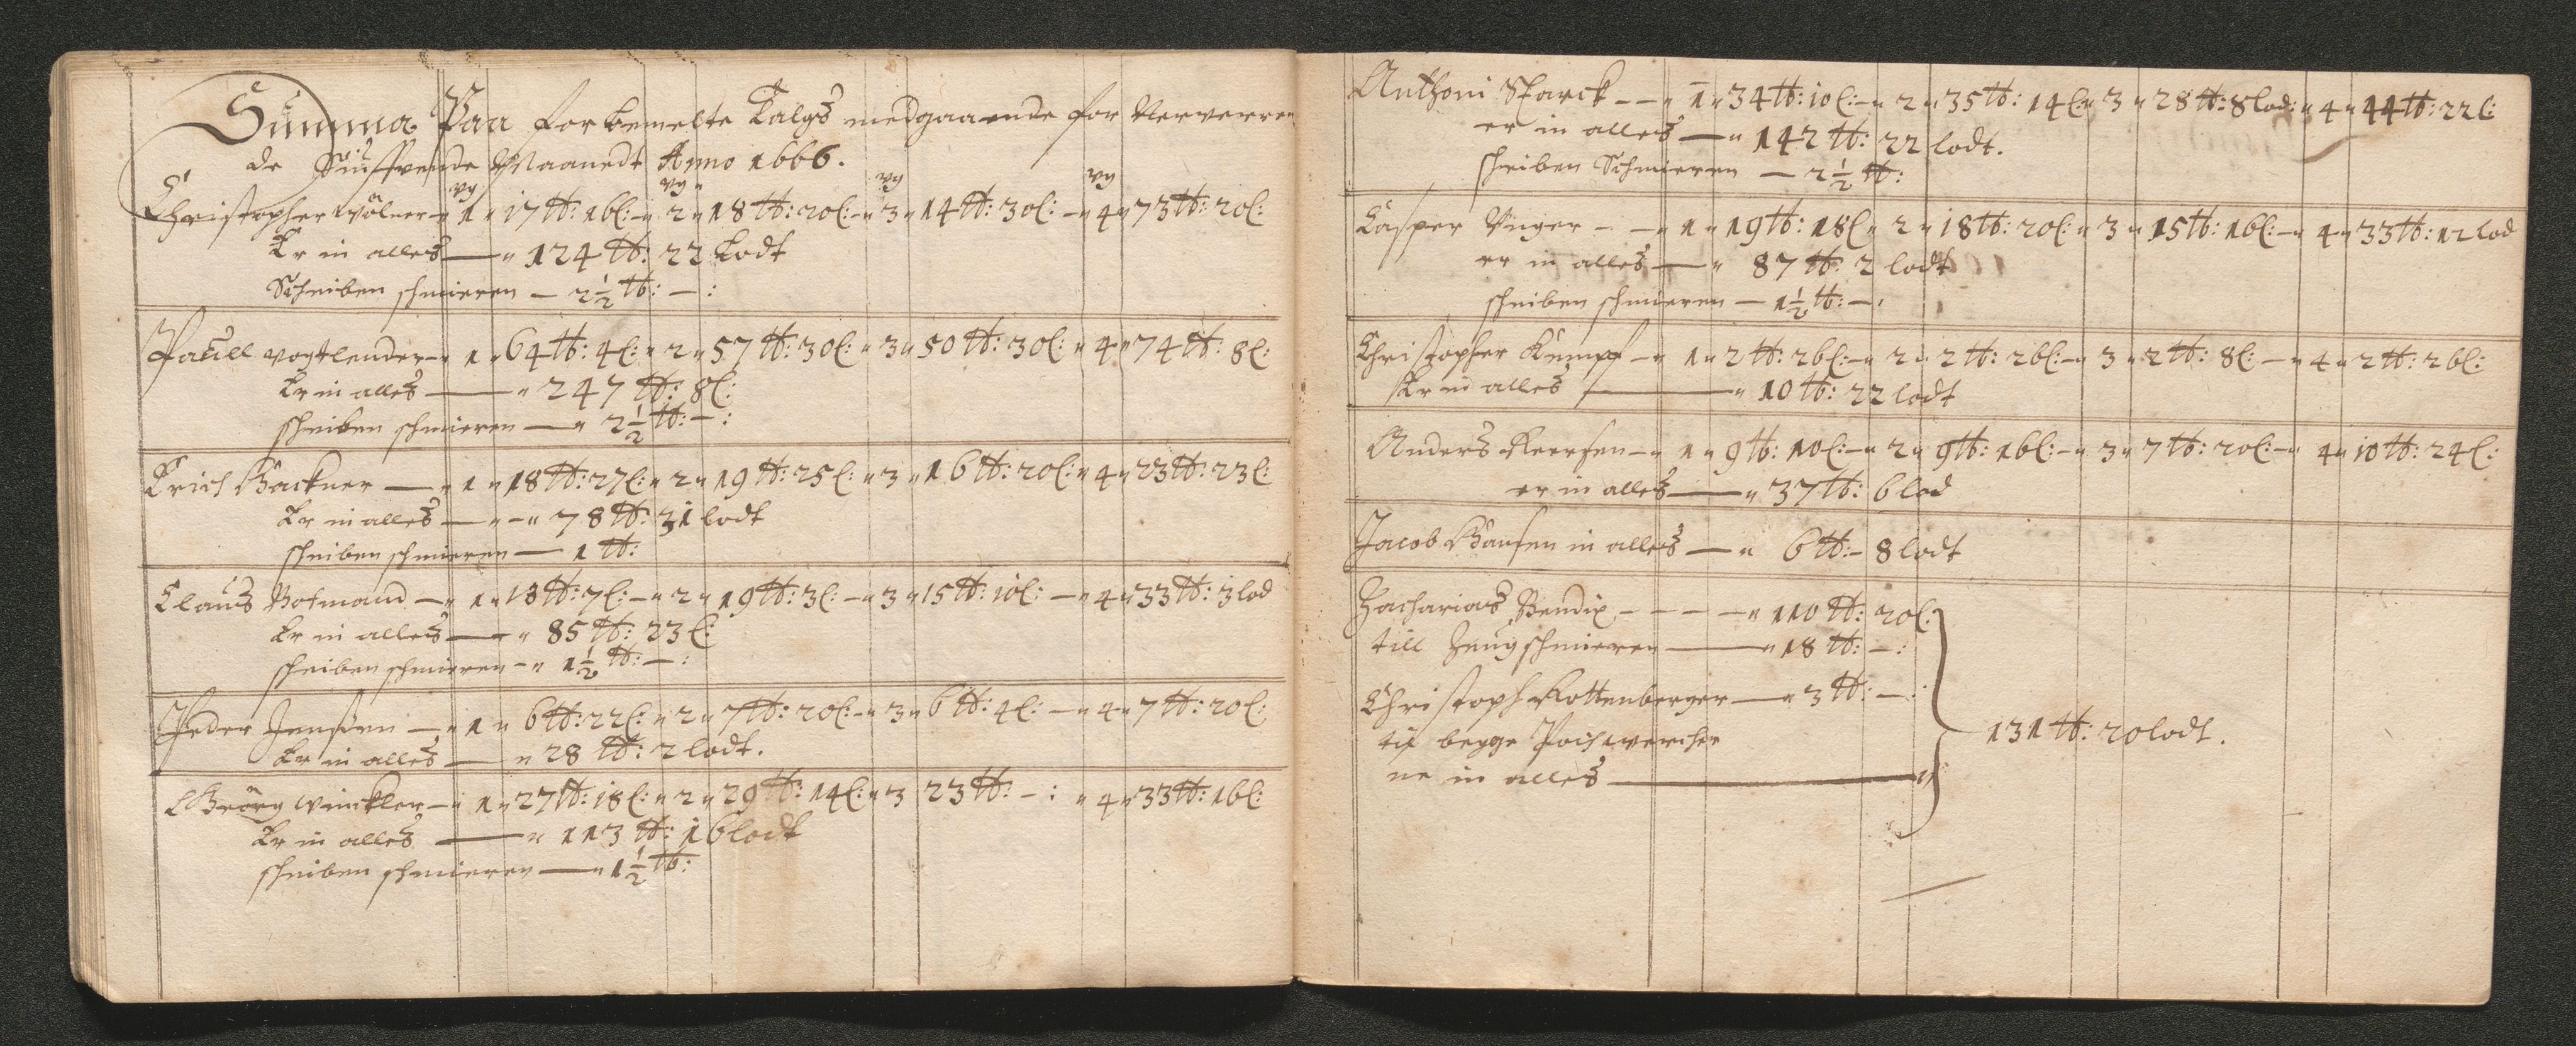 Summa Paa forbemelte Talgs medgaaende for Nerverren
de Siuffvende Maanedt Anno 1666.
vg vg vg vg
Christopher Wölner — 1 " 17 ℔: 16 l: — 2 " 18 ℔: 20 l: — 3 " 14 ℔: 30 l: — 4 " 73 ℔: 20 l:
Er in alles — " 124 ℔: 22 Lodt
Scheiben schmieren — 2½ ℔: — :
Paull Vogtlender — " 1 " 64 ℔: 4 l: " 2 " 57 ℔: 30 l: " 3 " 50 ℔: 30 l: " 4 " 74 ℔: 8 l:
Er in alles — " 247 ℔: 8 l:
scheiben schmieren — " 2½ ℔: — :
Erich Backner — " 1 " 18 ℔: 27 l: " 2 " 19 ℔: 25 l: " 3 " 16 ℔: 20 l: " 4 " 23 ℔: 23 l:
Er in alles — " — " 78 ℔: 31 lodt
scheiben schmieren — 1 ℔:
Claus Botmand — " 1 " 18 ℔: 7 l: — " 2 " 19 ℔: 3 l: — " 3 " 15 ℔: 10 l: — " 4 " 33 ℔: 3 lod
Er in alles — " 85 ℔: 23 l:
scheiben schmieren — " 1½ ℔: — :
Peder Jenssen — " 1 " 6 ℔: 22 l: " 2 " 7 ℔: 20 l: — " 3 " 6 ℔: 4 l: — " 4 " 7 ℔: 20 l:
Er in alles — " 28 ℔: 2 lodt.
Georg Winckler — " 1 " 27 ℔: 18 l: " 2 " 29 ℔: 14 l: " 3 23 ℔: — : " 4 " 33 ℔: 16 l:
Er in alles — " 113 ℔: 16 lodt
scheiben schmieren — " 1½ ℔:
Anthoni Starck — — " 1 " 34 ℔: 10 l: — " 2 " 35 ℔: 14 l: " 3 " 28 ℔: 8 lod: " 4 " 44 ℔: 22 l:
er in alles — " 142 ℔: 22 lodt.
scheiben Schmieren — 2½ ℔:
Casper Unger — — " 1 " 19 ℔: 18 l " 2 " 18 ℔: 20 l: " 3 " 15 ℔: 16 l: — " 4 " 33 ℔: 12 lod
er in alles — " 87 ℔: 2 lodt
scheiben schmieren — 1½ ℔: — :
Christopher Kempf — " 1 " 2 ℔: 26 l: — " 2 " 2 ℔: 26 l: — " 3 " 2 ℔: 8 l: — " 4 " 2 ℔: 26 l:
Er in alles — " 10 ℔: 22 lodt
Anders Keersen — " 1 " 9 ℔: 10 l: — " 2 " 9 ℔: 16 l: — " 3 " 7 ℔: 20 l: — " 4 " 10 ℔: 24 l:
er in alles — " 37 ℔: 6 lod
Jacob Hansen in alles — " 6 ℔: — 8 lodt
Zacharias Bendix — — — — " 110 ℔: 20 l:
till Zeug schmieren — " 18 ℔: — :
Christoph Rottenberger — " 3 ℔: — :
til begge Pochwerche
ne in alles — " 131 ℔: 20 lodt.